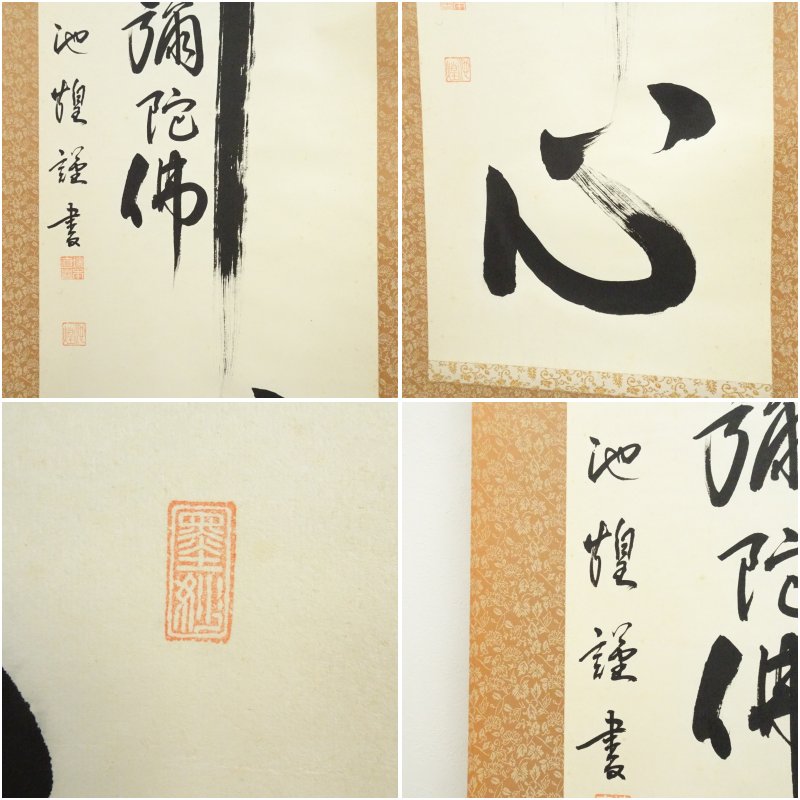 彌陀佛
池煌謹書
心
墨妙
彌陀佛
池煌謹書